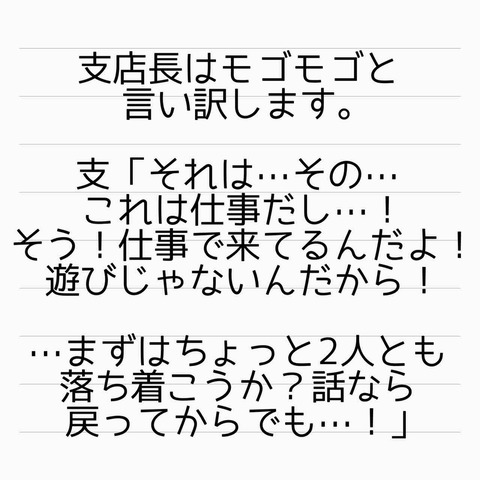 支店長はモゴモゴと
言い訳します。
支「それは…その…
これは仕事だし…！
そう！仕事で来てるんだよ！
遊びじゃないんだから！
…まずはちょっと2人とも
落ち着こうか？話なら
戻ってからでも…！」